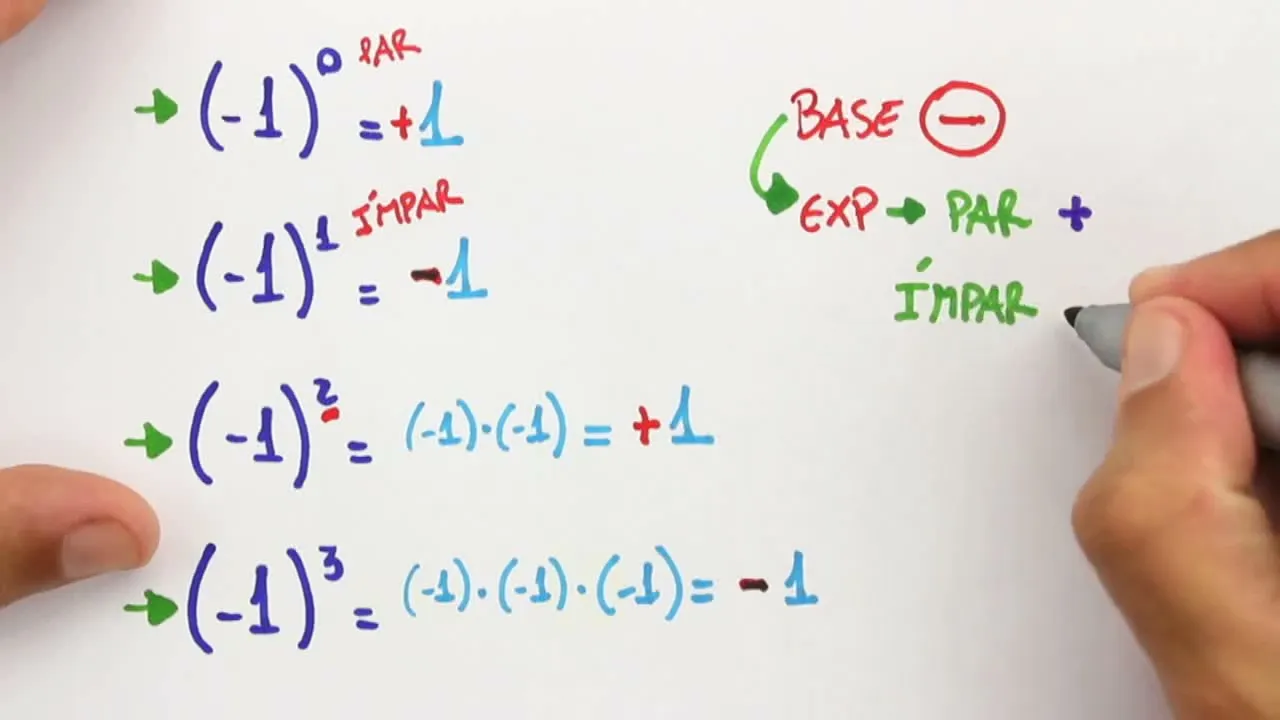 (-1)⁰ PAR = +1
(-1)¹ ÍMPAR = -1
(-1)² = (-1)·(-1) = +1
(-1)³ = (-1)·(-1)·(-1) = -1
BASE -
EXP → PAR +
ÍMPAR